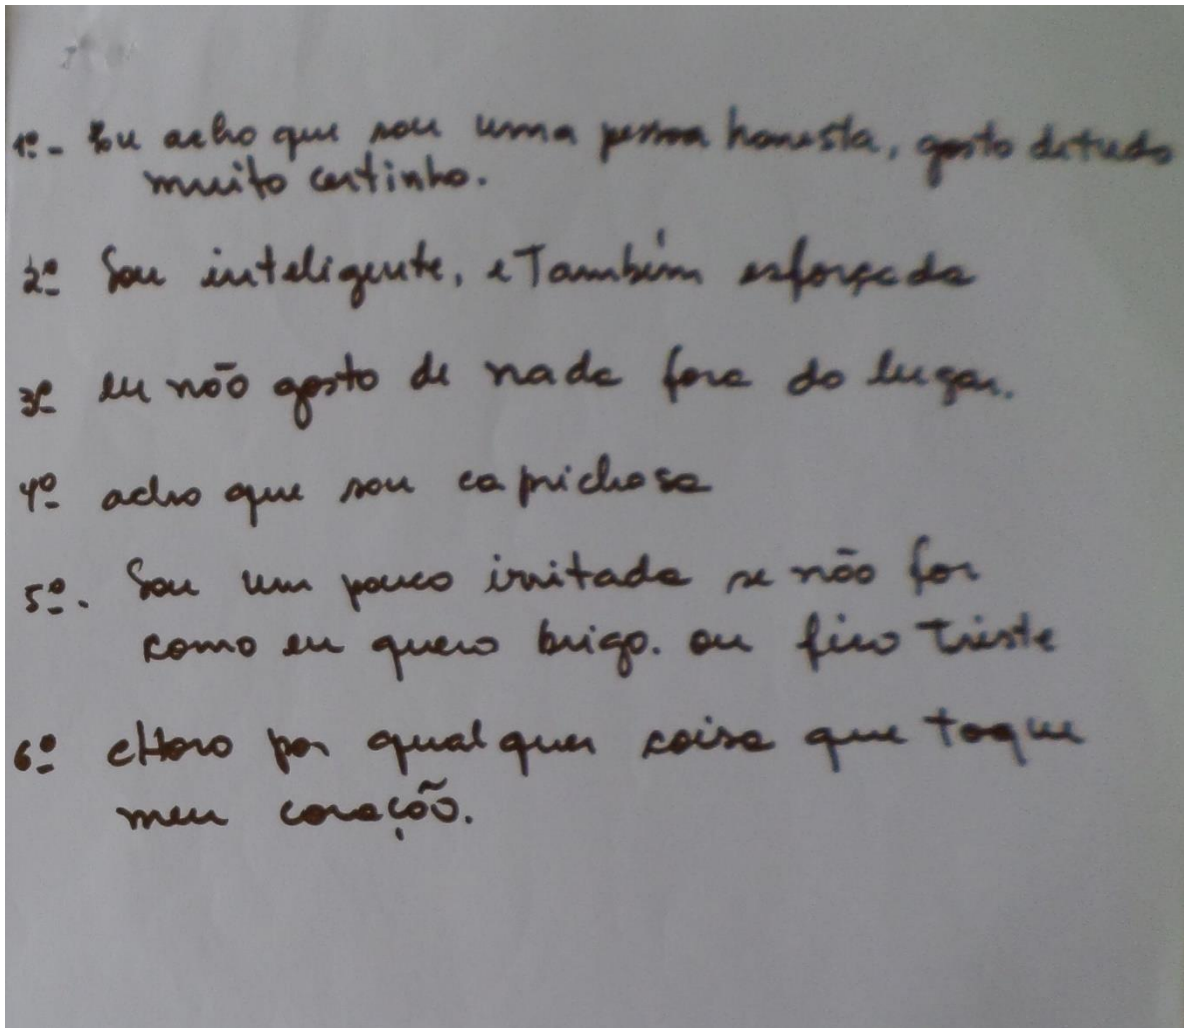 1º- Eu acho que sou uma pessoa honesta, gosto de tudo
muito certinho.
2º Sou inteligente, e Também esforçada
3º eu não gosto de nada fora do lugar.
4º acho que sou caprichosa
5º. Sou um pouco irritada se não for
como eu quero brigo. ou fico Triste
6º cHoro por qualquer coisa que toque
meu coração.